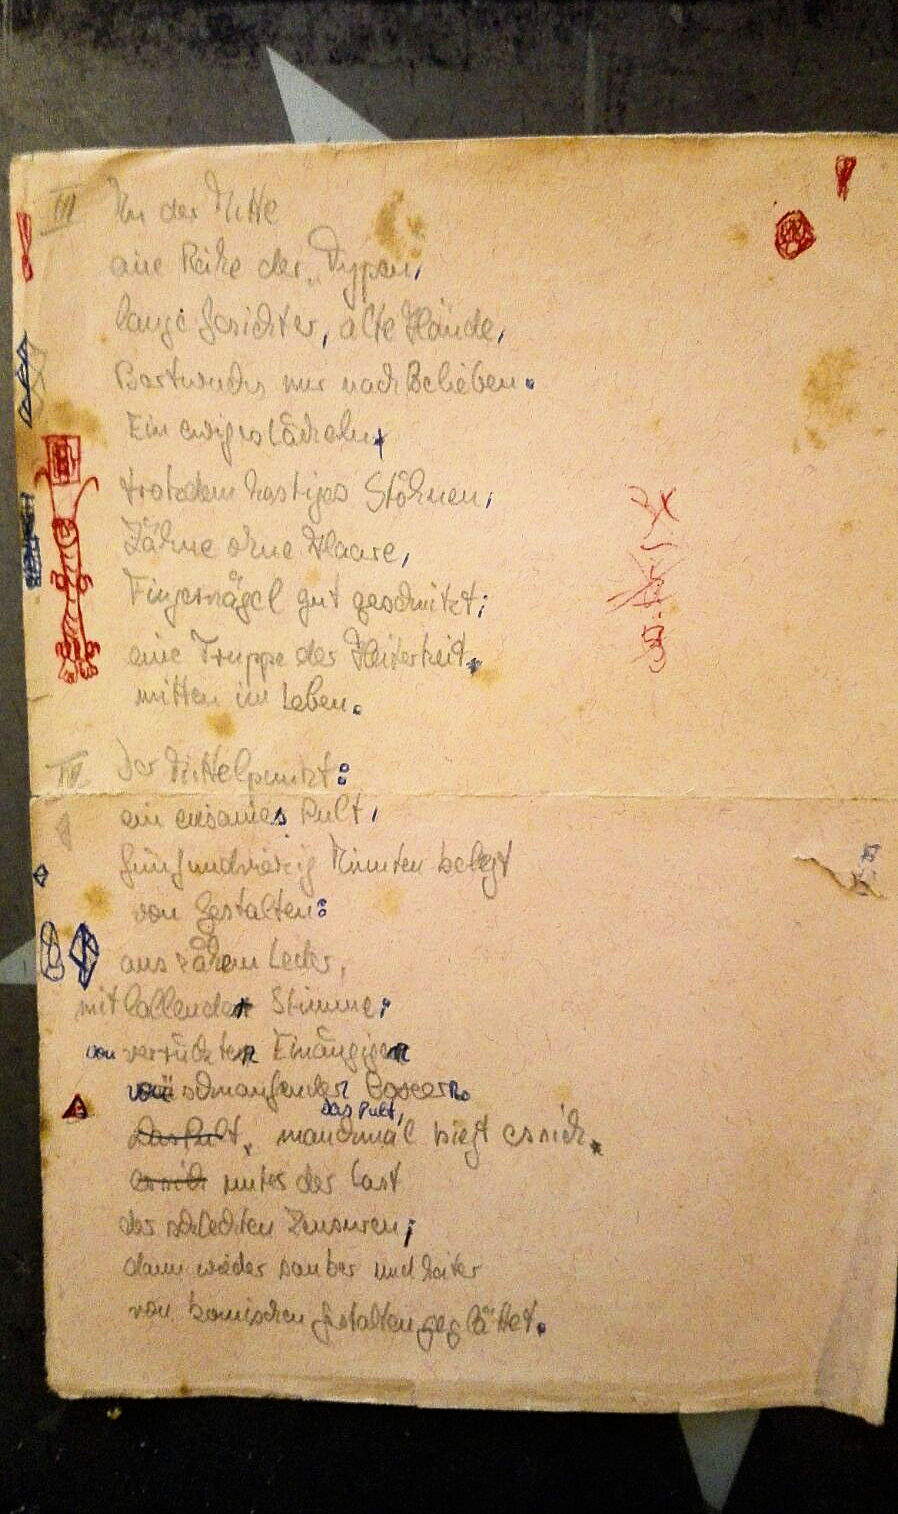 III In der Mitte
eine Reihe der Typen,
lange Gesichter, alte Hände,
Bartwuchs nur nach Belieben.
Ein ewiges Lächeln,
trotzdem hastiges Stöhnen,
Zähne ohne Haare,
Fingernägel gut geschnitzt;
eine Truppe der Heiterkeit,
mitten im Leben.
IV Der Mittelpunkt:
ein einsames Pult,
fünfundvierzig Minuten belegt
von Gestalten:
aus zähem Leder,
mit lallender Stimme;
von verrückten Einäugigen
von schnaufenden Boxern.
Das Pult,
Das Pult, manchmal biegt es sich.
es sich unter der Last
der schlechten Zensuren;
dann wieder sauber und heiter
von komischen Gestalten geglättet.